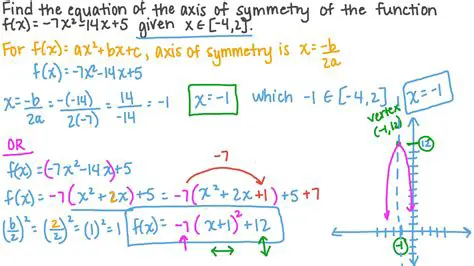 Find the equation of the axis of symmetry of the function
f(x) = -7x²-14x+5 given x ∈ [-4,2].
For f(x) = ax²+bx+c, axis of symmetry is x = -b/2a
f(x) = -7x²-14x+5
x = -b/2a = -(-14)/2(-7) = 14/-14 = -1
x = -1
which -1 ∈ [-4,2]
x = -1
vertex
(-1,12)
12
-1
OR
f(x) = (-7x²-14x)+5
-7
f(x) = -7(x²+2x)+5 = -7(x²+2x+1)+5+7
(b/2)² = (2/2)² = (1)² = 1
f(x) = -7(x+1)²+12